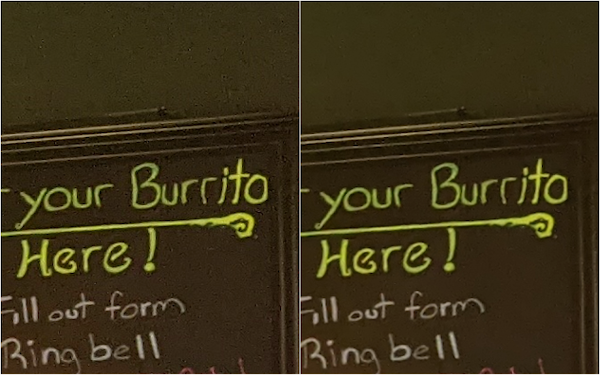 your Burrito
Here!
Fill out form
Ring bell
your Burrito
Here!
Fill out form
Ring bell